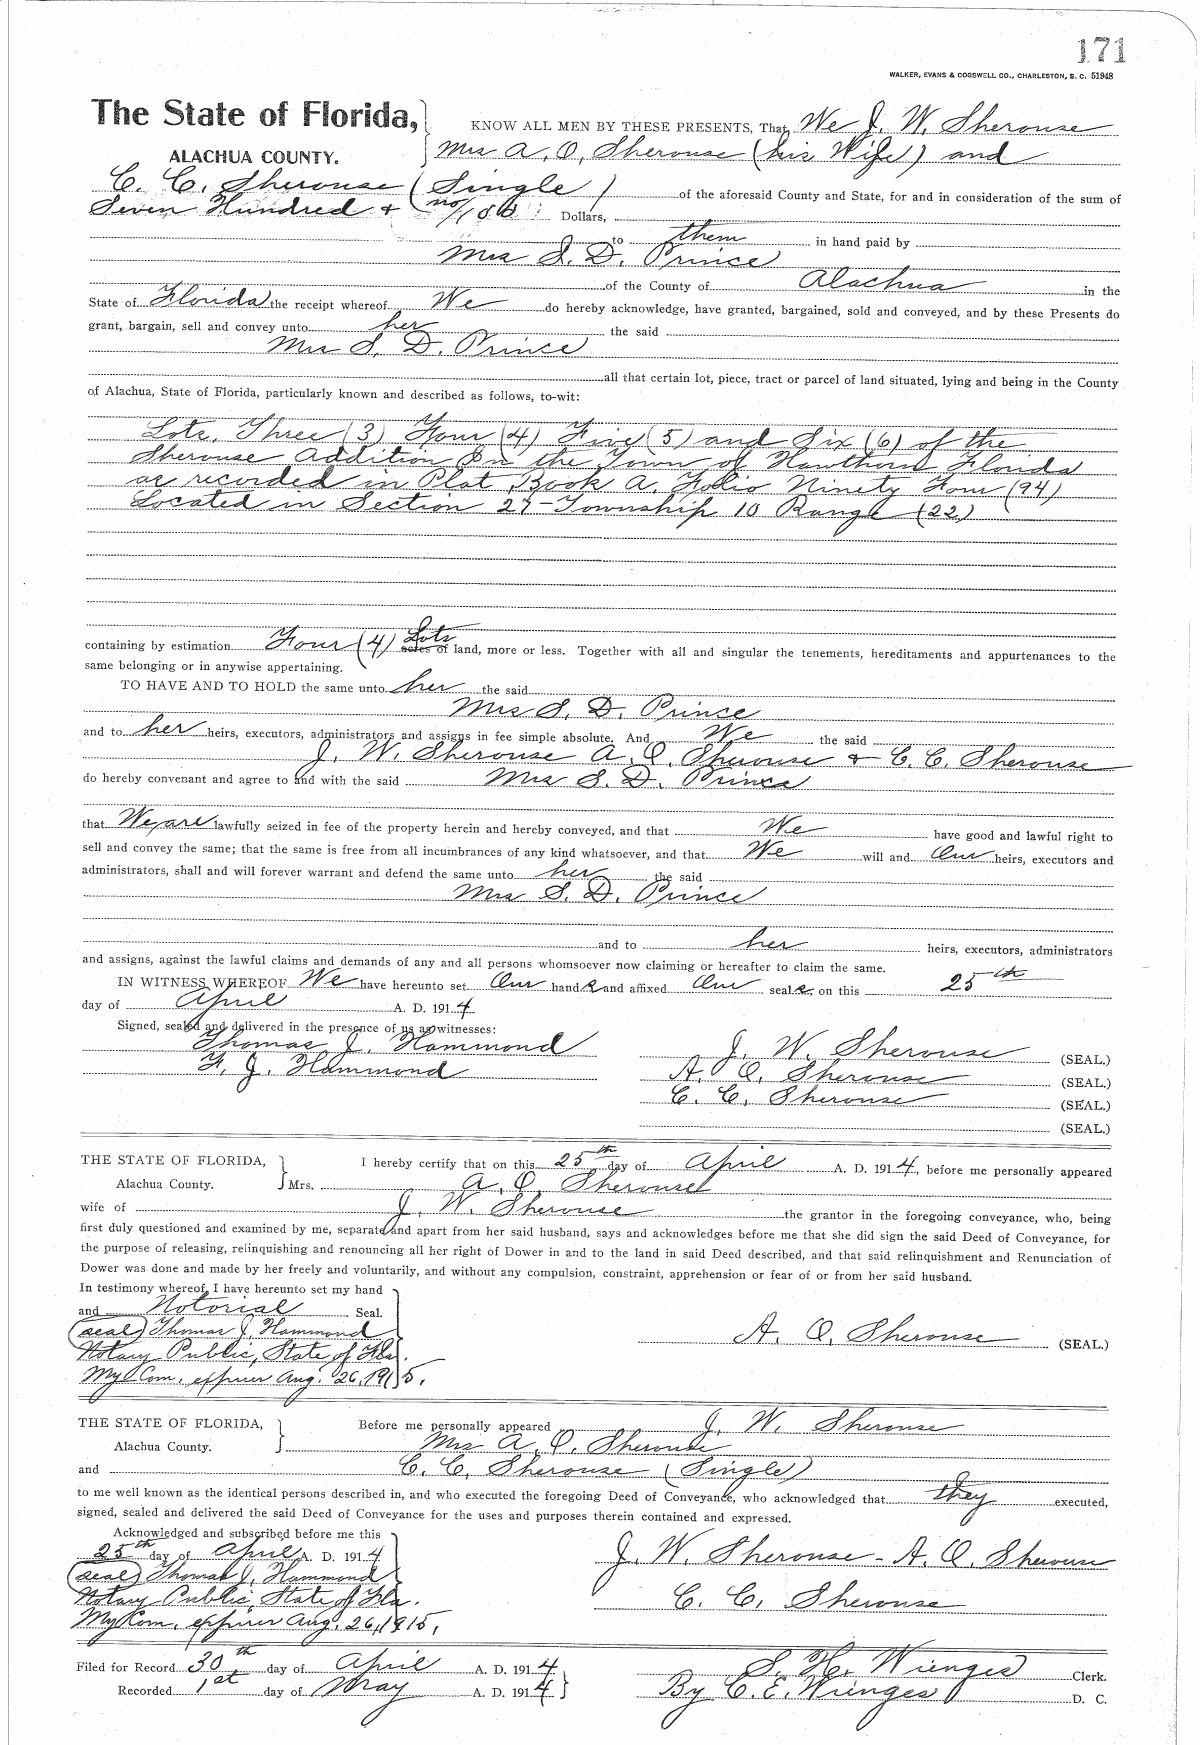 171
WALKER, EVANS & COGSWELL CO., CHARLESTON, S. C. 51948
The State of Florida, KNOW ALL MEN BY THESE PRESENTS, That We J. W. Sherouse
ALACHUA COUNTY. Mrs A. O. Sherouse (his Wife) and
C. C. Sherouse (Single) of the aforesaid County and State, for and in consideration of the sum of
Seven Hundred & (no/100 Dollars,
to them in hand paid by
Mrs S. D. Prince
of the County of Alachua in the
State of Florida the receipt whereof We do hereby acknowledge, have granted, bargained, sold and conveyed, and by these Presents do
grant, bargain, sell and convey unto her the said
Mrs S. D. Prince
all that certain lot, piece, tract or parcel of land situated, lying and being in the County
of Alachua, State of Florida, particularly known and described as follows, to-wit:
Lots, Three (3) Four (4) Five (5) and Six (6) of the
Sherouse Addition In the Town of Hawthorn Florida
as recorded in Plat Book A. Folio Ninety Four (94)
Located in Section 27-Township 10 Range (22)
containing by estimation Four (4) Lots acres of land, more or less. Together with all and singular the tenements, hereditaments and appurtenances to the
same belonging or in anywise appertaining.
TO HAVE AND TO HOLD the same unto her the said
Mrs S. D. Prince
and to her heirs, executors, administrators and assigns in fee simple absolute. And We the said
J. W. Sherouse A. O. Sherouse & C. C. Sherouse
do hereby convenant and agree to and with the said Mrs S. D. Prince
that We are lawfully seized in fee of the property herein and hereby conveyed, and that We have good and lawful right to
sell and convey the same; that the same is free from all incumbrances of any kind whatsoever, and that We will and Our heirs, executors and
administrators, shall and will forever warrant and defend the same unto her the said
Mrs S. D. Prince
and to her heirs, executors, administrators
and assigns, against the lawful claims and demands of any and all persons whomsoever now claiming or hereafter to claim the same.
IN WITNESS WHEREOF We have hereunto set Our hands and affixed Our seals, on this 25th
day of April A. D. 1914
Signed, sealed and delivered in the presence of us as witnesses:
Thomas J. Hammond
F. J. Hammond
J. W. Sherouse (SEAL.)
A. O. Sherouse (SEAL.)
C. C. Sherouse (SEAL.)
(SEAL.)
THE STATE OF FLORIDA, I hereby certify that on this 25th day of April A. D. 1914, before me personally appeared
Alachua County. Mrs. A. O. Sherouse
wife of J. W. Sherouse the grantor in the foregoing conveyance, who, being
first duly questioned and examined by me, separate and apart from her said husband, says and acknowledges before me that she did sign the said Deed of Conveyance, for
the purpose of releasing, relinquishing and renouncing all her right of Dower in and to the land in said Deed described, and that said relinquishment and Renunciation of
Dower was done and made by her freely and voluntarily, and without any compulsion, constraint, apprehension or fear of or from her said husband.
In testimony whereof, I have hereunto set my hand
and Notorial Seal.
(seal) Thomas J. Hammond A. O. Sherouse (SEAL.)
Notary Public, State of Fla.
My Com. expires Aug. 26, 1915.
THE STATE OF FLORIDA, Before me personally appeared J. W. Sherouse
Alachua County. Mrs A. O. Sherouse
and C. C. Sherouse (Single)
to me well known as the identical persons described in, and who executed the foregoing Deed of Conveyance, who acknowledged that they executed,
signed, sealed and delivered the said Deed of Conveyance for the uses and purposes therein contained and expressed.
Acknowledged and subscribed before me this
25th day of April A. D. 1914 J. W. Sherouse - A. O. Sherouse
(seal) Thomas J. Hammond
Notary Public, State of Fla. C. C. Sherouse
My Com. expires Aug. 26, 1915.
Filed for Record 30th day of April A. D. 1914 S. H. Wienges Clerk.
Recorded 1st day of May A. D. 1914 By C. E. Wienges D. C.